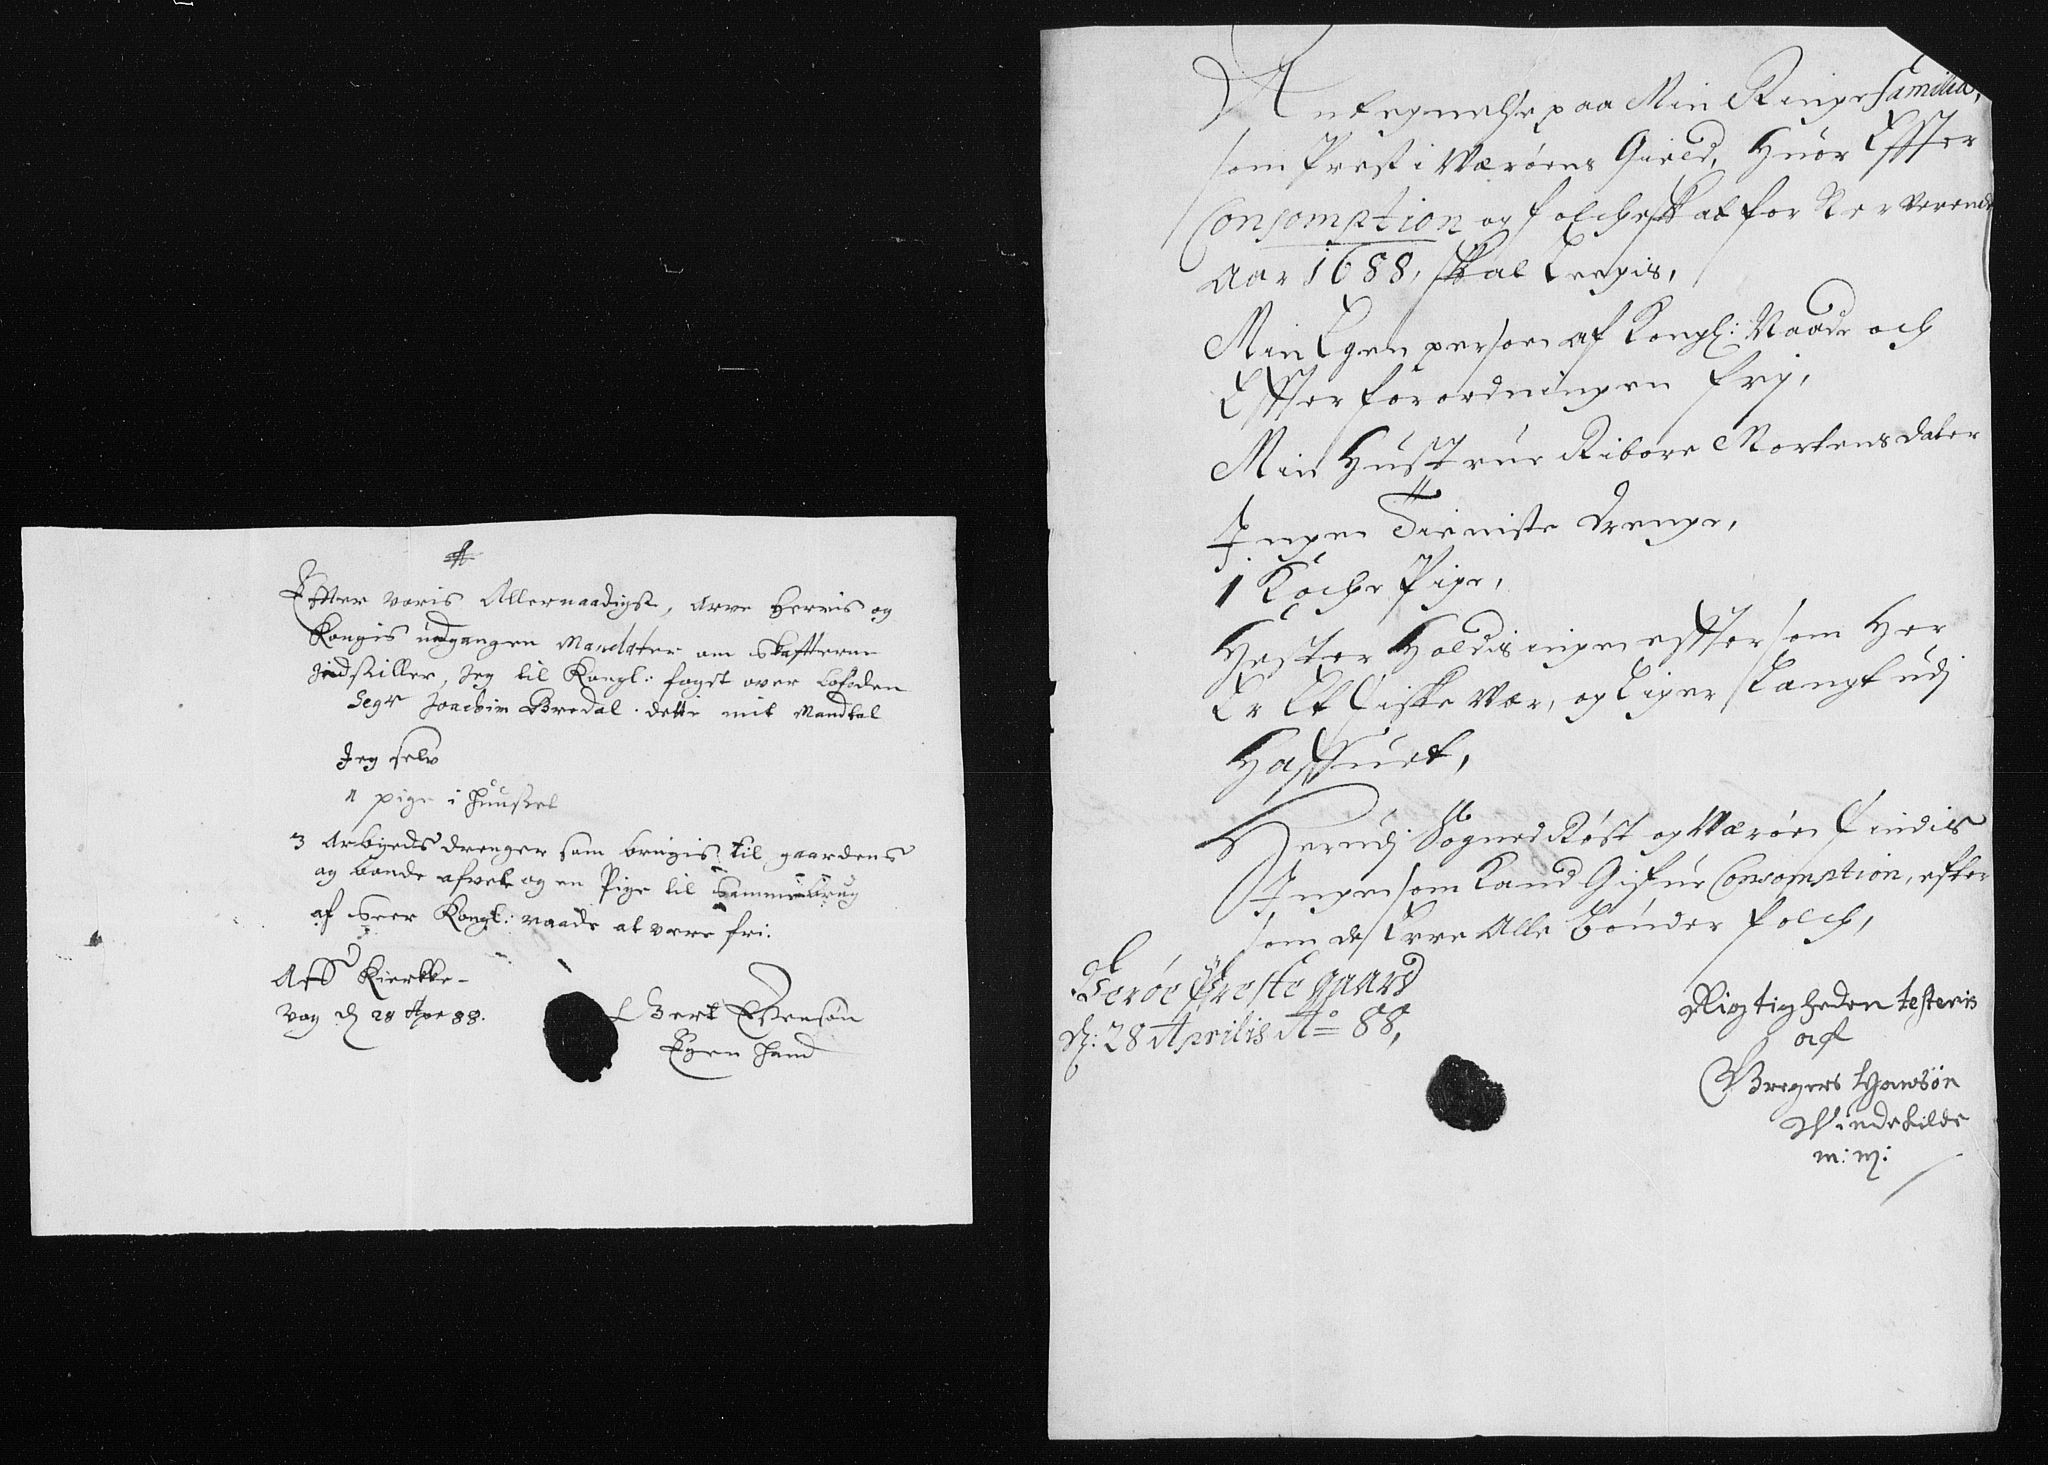 Effter voris Allernaadigst, Arve Herris og
Kongis udgangen Mandater om Skatterne
Jndstiller, Jeg til Kongl: fogst over Lofoden
Segr Joachim Bredal dette mit Mandtal
Jeg selv
1 pige i huuset
3 Arbyeds drenger som brugis til gaardens
og en Pige til
af Kongl: naade at være fri.
Aff Kierkke-
vog d 28 Apr 88.
Egen Hand
Antegnelse paa Min Ringe Familia,
som Prest i Værøens Gield, Huor Effter
Consomption og folcheskat for Nerverende
Aar 1688, skal Leegis,
Min Egen person af Kongl: Naade och
Effter forordningen frij,
Min Hustrue Ribore Mortensdater
Ingen Tieniste Drenge,
1 Kocke Pige,
Hester Holdis ingen effter som Her
Er Et fiske Vær, og Liger Langt udj
Haffuet,
Herudj Sogned Røst og Værøen Findis
Ingen som kand Gifue Consomption, efter
som de Ere Alle Bønder folch,
Verøe Preste gaard
D: 28 Aprilis Ao 88,
Rigtigheden testeris
af
Gregers Hansøn
Windekilde
m: m: